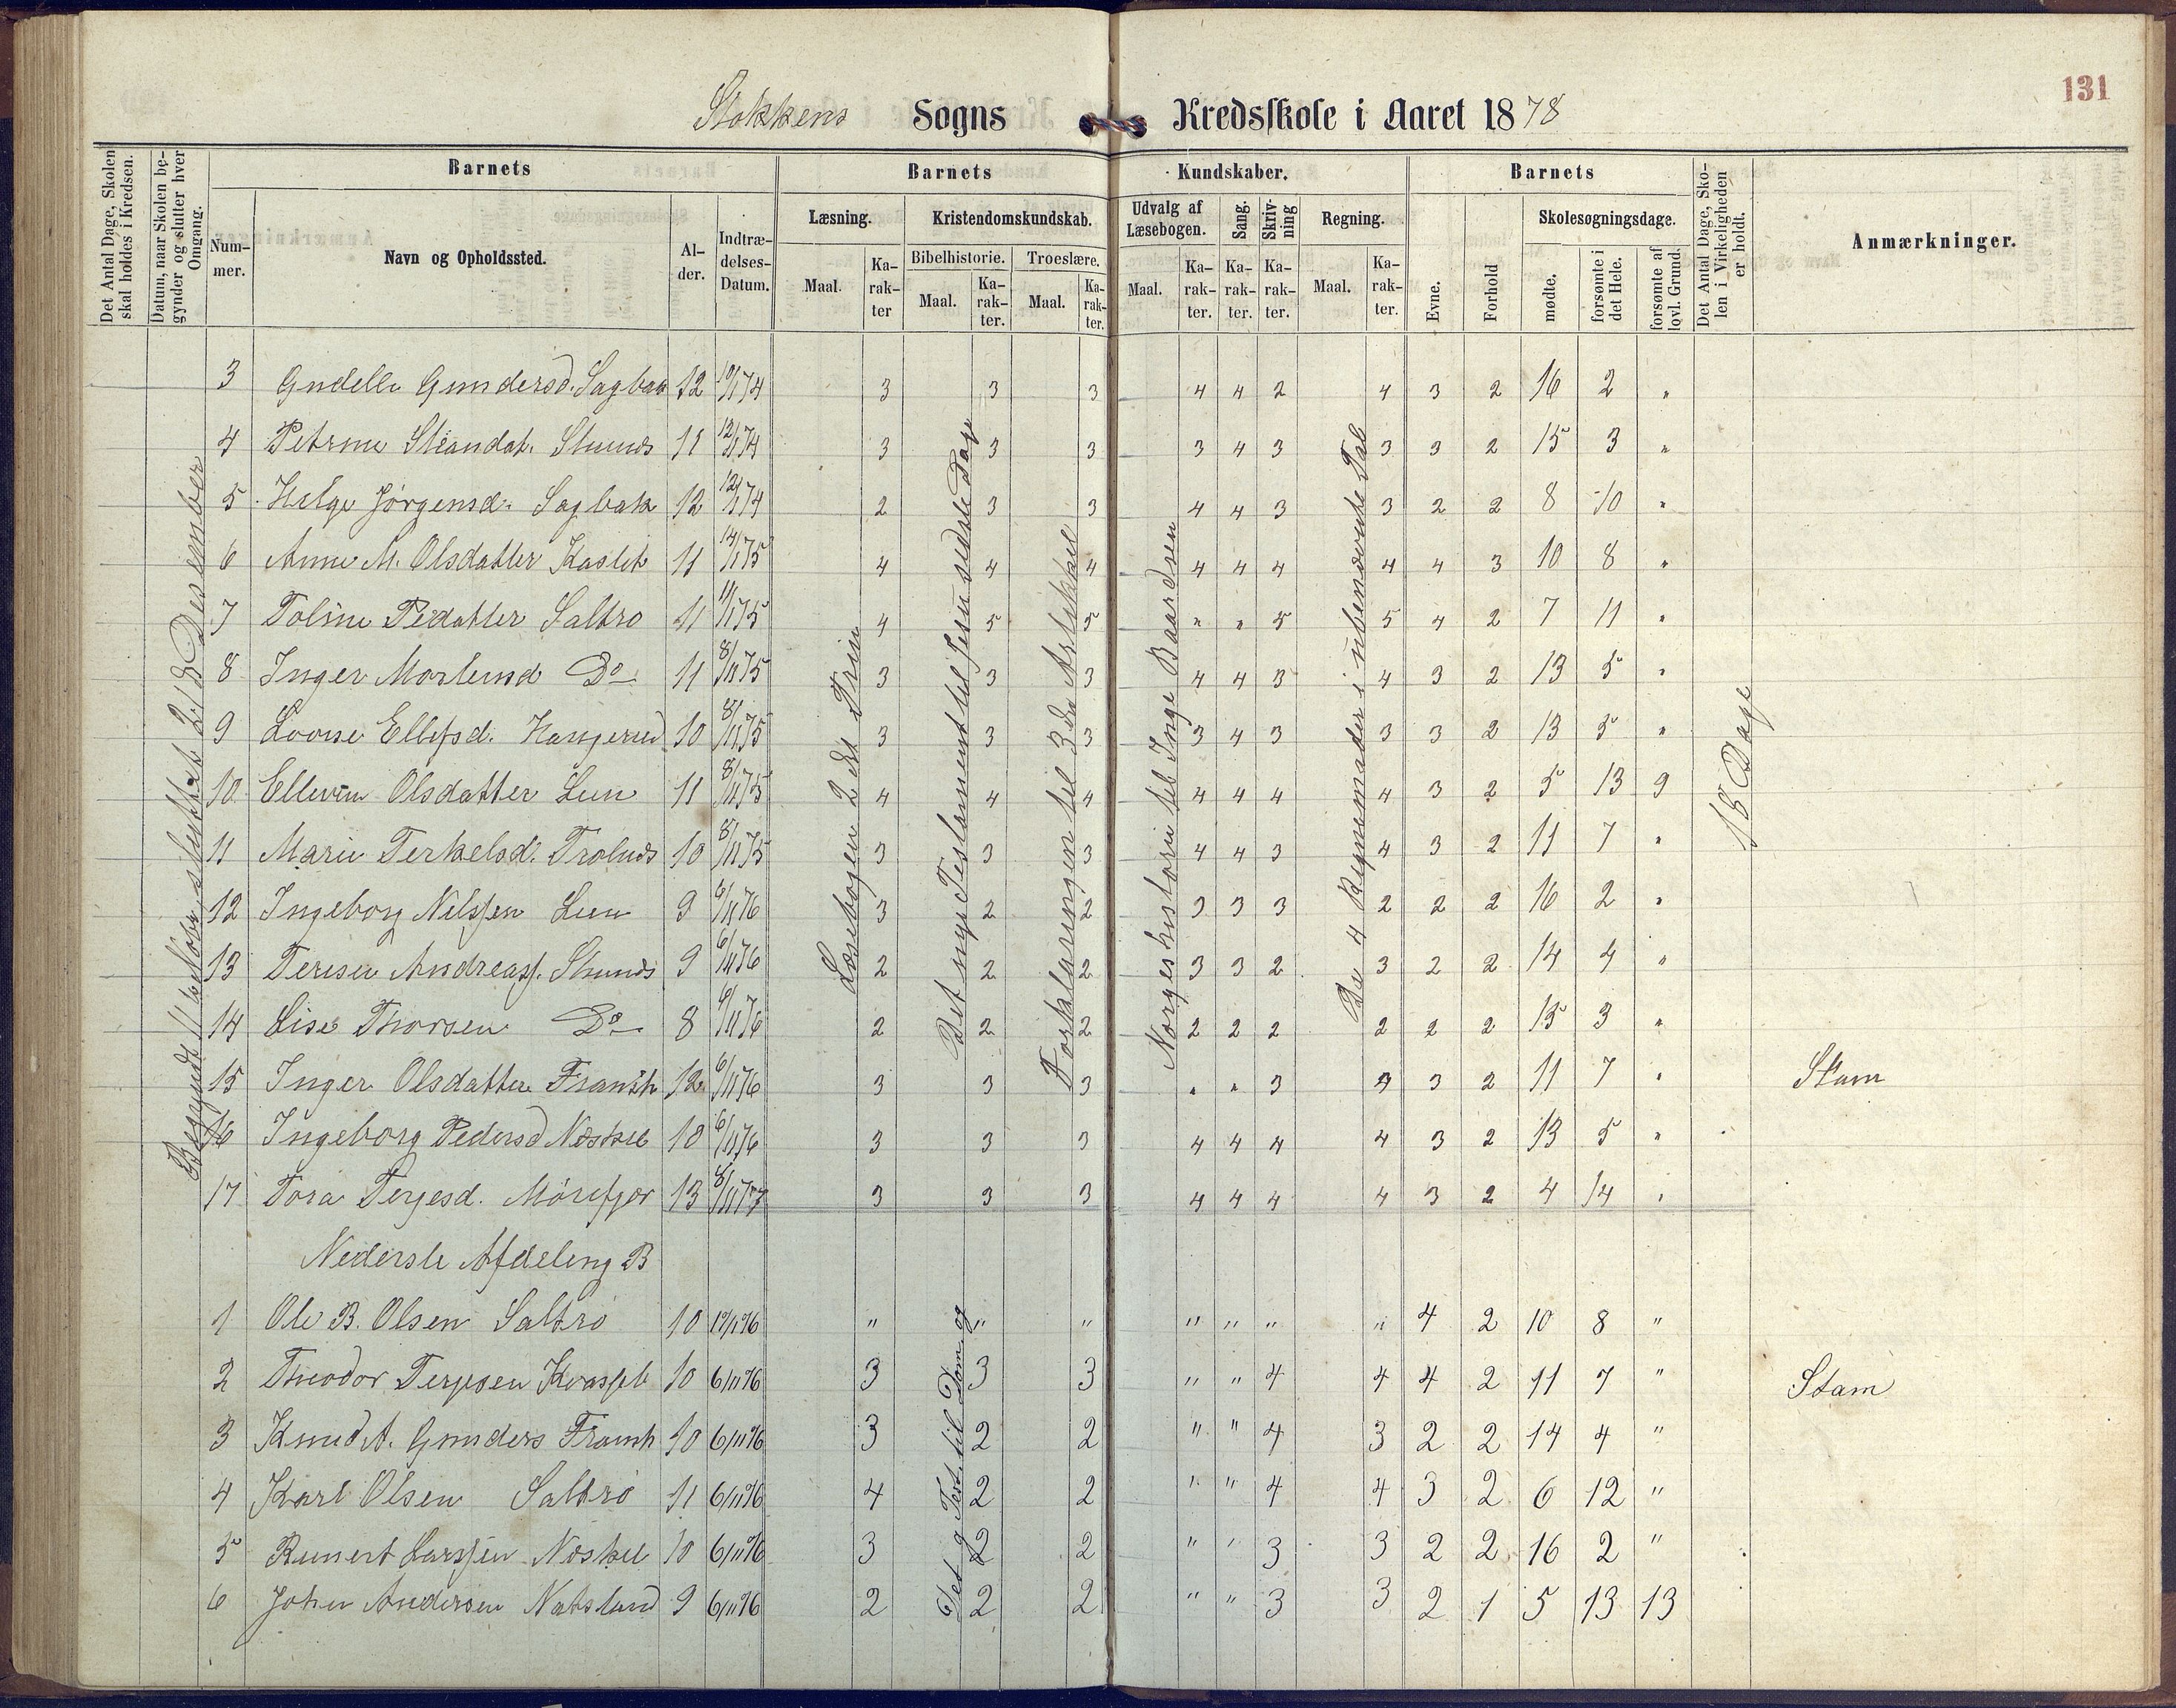 131
Stokkens Sogns Kredsskole i Aaret 1878
Det Antal Dage, Skolen skal holdes i Kredsen.
Datum, naar Skolen begynder og slutter hver Omgang.
Barnets
Nummer.
Navn og Opholdssted.
Alder.
Indtrædelses-Datum.
Barnets Kundskaber.
Læsning.
Maal.
Karakter
Kristendomskundskab.
Bibelhistorie.
Maal.
Karakter.
Troeslære.
Maal.
Karakter.
Udvalg af Læsebogen.
Maal.
Karakter.
Sang.
Karakter.
Skrivning
Karakter.
Regning.
Maal.
Karakter.
Barnets
Evne.
Forhold
Skolesøgningsdage.
mødte.
forsømte i det Hele.
forsømte af lovl. Grund.
Det Antal Dage, Skolen i Virkeligheden er holdt.
Anmærkninger.
3 Gundersd. Sagbak 12 3 3 3 4 4 2 4 3 2 16 2 "
4 11 3 3 3 3 4 3 3 3 2 15 3 "
5 Helge Jørgensd. Sagbak 12 2 3 3 4 4 3 3 2 2 8 10 "
6 Anne M. Olsdatter 11 4 4 4 4 4 4 4 4 3 10 8 "
7 Toline Pedatter Saltrø 11 4 5 5 " " 5 5 4 2 7 11 "
8 Inger Do 11 8/11 75 3 3 3 4 4 3 4 3 2 13 5 "
9 Lovise Ellefsd. 10 8/11 75 3 3 3 3 4 3 3 3 2 13 5 "
10 Olsdatter Lun 11 8/11 75 4 4 4 4 4 4 4 3 2 5 13 9
11 Marie Terkelsd. 10 8/11 75 3 3 3 4 4 3 4 3 2 11 7 "
12 Ingeborg Nilssen Lun 9 6/11 76 3 2 2 3 3 3 2 2 2 16 2 "
13 Andreass. 9 6/11 76 2 2 2 3 3 2 3 2 2 14 4 "
14 Lise Thorsen Do 8 6/11 76 2 2 2 2 2 2 2 2 2 15 3 "
15 Inger Olsdatter 12 6/11 76 3 3 3 " " 3 3 2 11 7 " Stam
16 Ingeborg Pedersd Næskil 10 6/11 76 3 3 3 4 4 4 4 3 2 13 5 "
17 Tora Terjesd. Mørefjær 13 3 3 3 4 4 4 4 3 2 4 14 "
Begyndt
Læsebogen 2det Trin
Det nye Testament til Jesu sidste Dage
Forklaringen til 3die Artikkel
Norgeshistorie til Inge Baardsen
De 4 Regnemaader i ubenævnte Tal
18 Dage
Nederste Afdeling B
1 Ole B. Olsen Saltrø 10 " " " " " " " 4 2 10 8 "
2 Theodor Terjesen 10 6/11 76 3 3 3 " " 4 4 4 2 11 7 " Stam
3 Knud A. Gunders 10 6/11 76 3 2 2 " " 4 3 2 2 14 4 "
4 Karl Olsen Saltrø 11 6/11 76 4 2 2 " " 4 4 3 2 6 12 "
5 Larssen Næskil 10 6/11 76 3 2 2 " " 3 3 2 2 16 2 "
6 John Andersen 9 6/11 76 2 2 2 " " 3 3 2 1 5 13 13
Det g Test. til